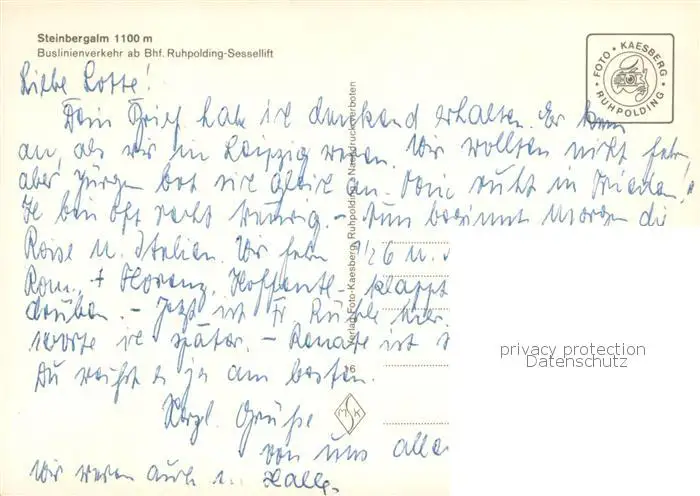 Steinbergalm 1100 m
Buslinienverkehr ab Bhf. Ruhpolding-Sessellift
FOTO · KAESBERG · RUHPOLDING ·
Liebe Lotte!
Dein Brief habe ich dankend erhalten. Er kam
an, als wir in Leipzig waren. Wir wollten nicht fahr.
aber Jürgen bot sich gleich an. ruht in Frieden,
Ich bin oft recht traurig. – Nun beginnt morgen die
Reise n. Italien. Wir fahr. 1/2 6 U.
Rom, + Florenz. Hoffentl. klappt
drüben. – Jetzt ist Fr. hier.
worte ich später. – Renate ist
Du weißt es ja am besten.
Herzl. Grüße
von uns alle
Wir waren auch in Halle.
Verlag Foto-Kaesberg, Ruhpolding, Nachdruck verboten
26
M S K
privacy protection
Datenschutz